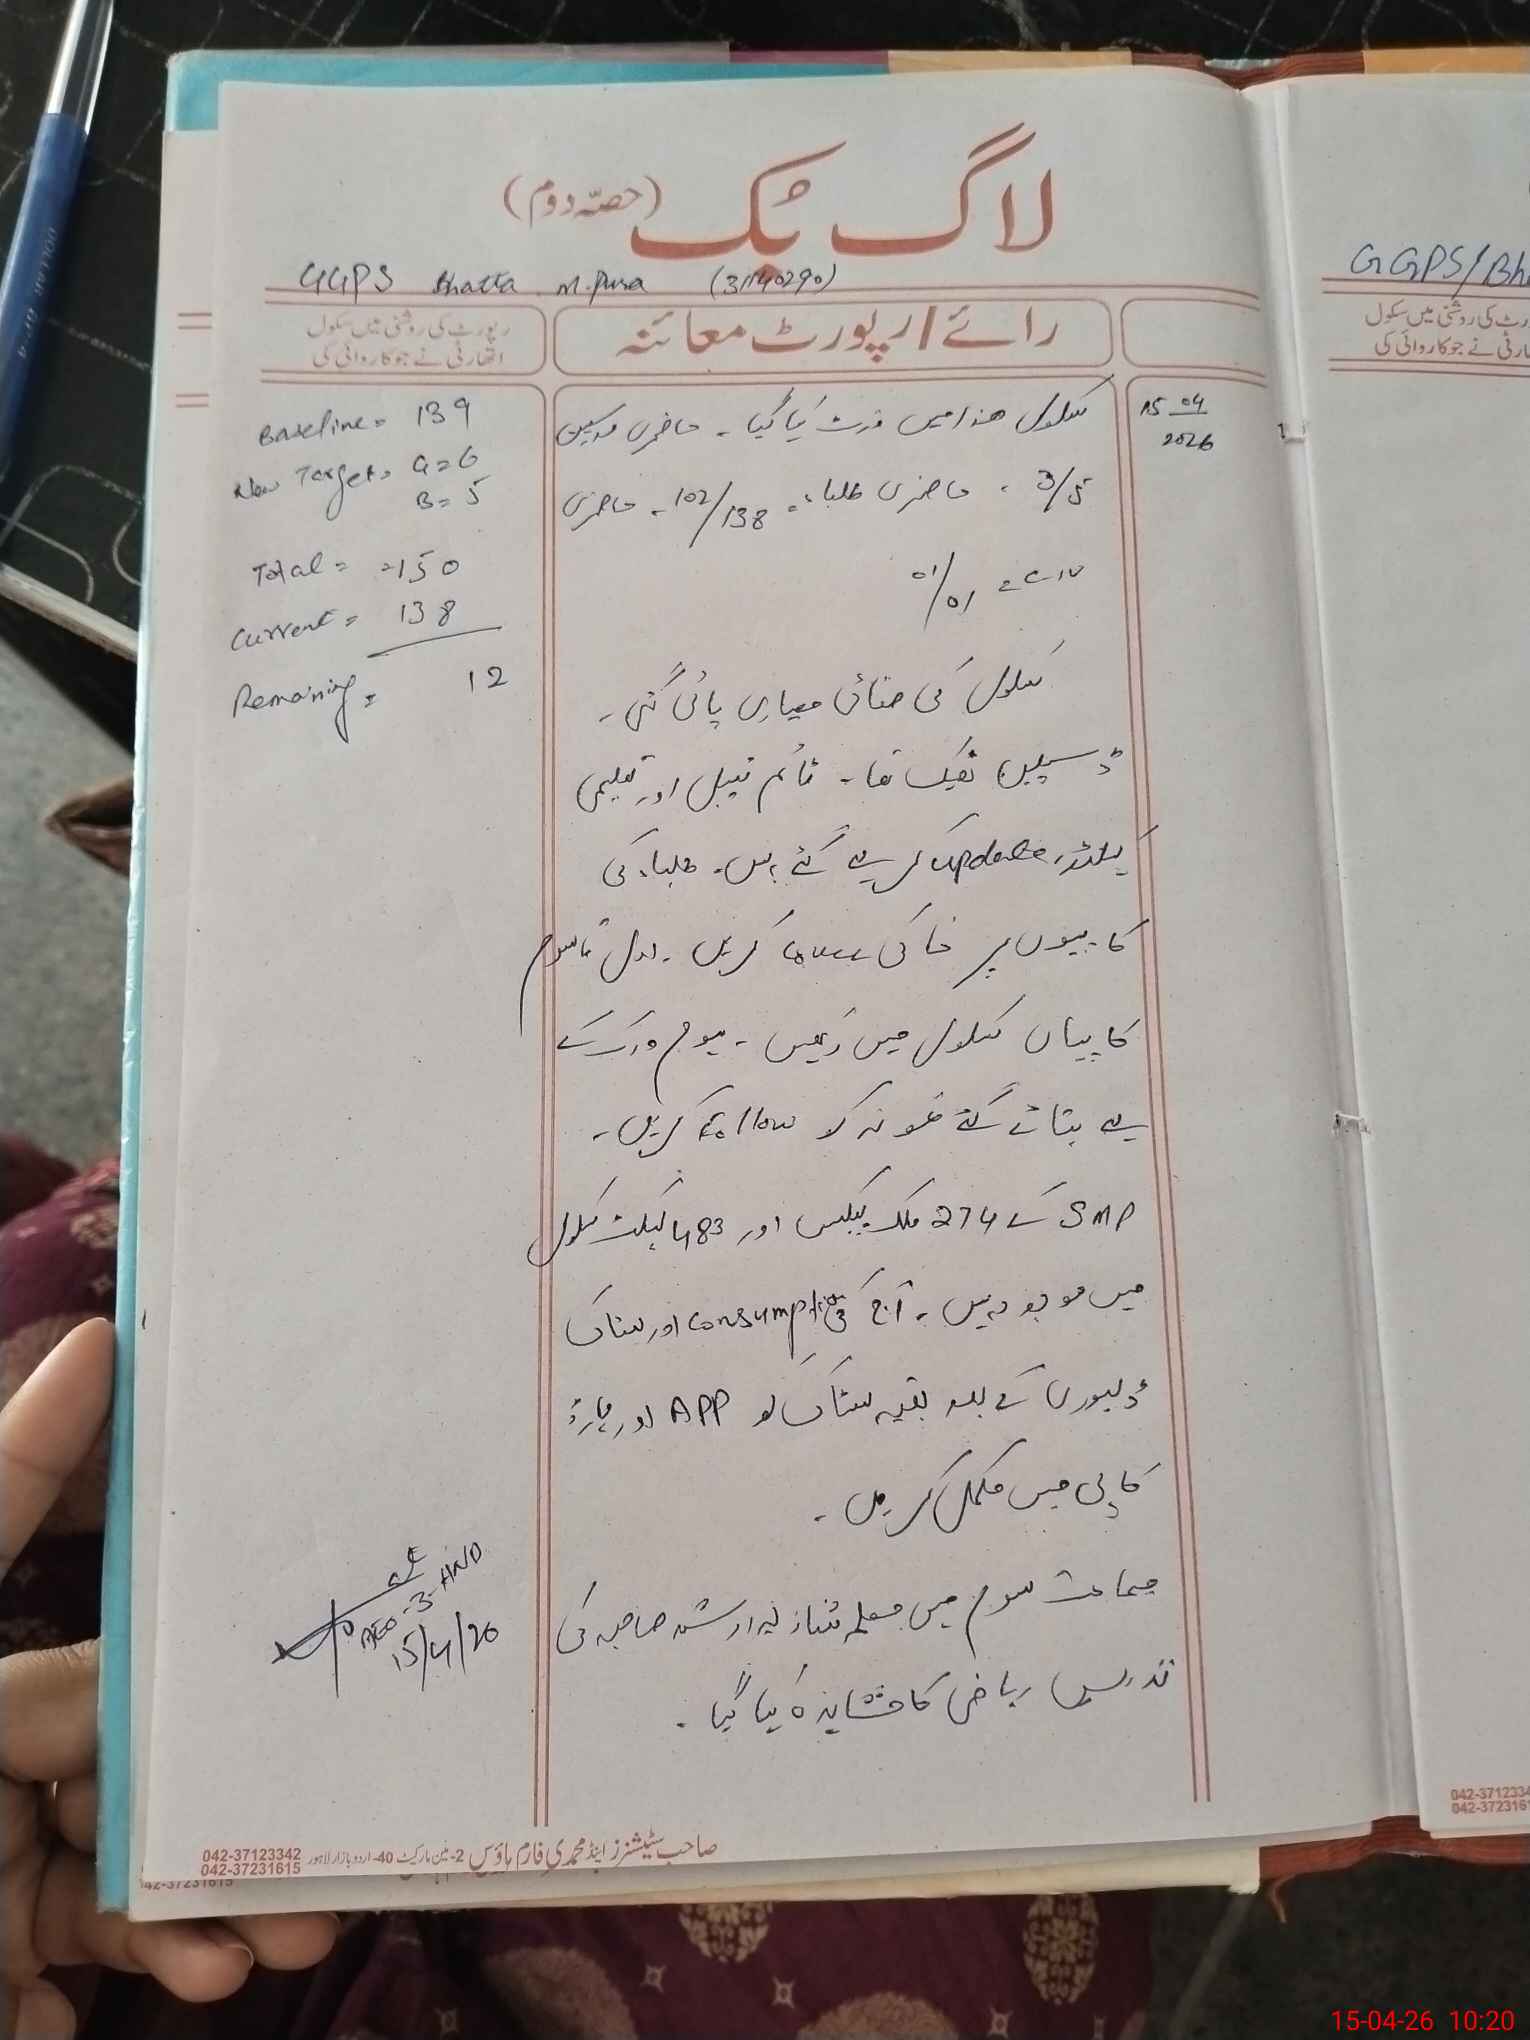 لاگ بک (حصہ دوم)
GGPS Bhatta M.Pura (31140290)
رائے / رپورٹ معائنہ
رپورٹ کی روشنی میں سکول
اتھارٹی نے جو کاروائی کی
15 04
2026
سکول ھذا میں وزٹ کیا گیا۔ حاضری مدرسین
3/5 ۔ حاضری طلباء 102/138 ۔ حاضری
01/01
سکول کی صفائی معیاری پائی گئی۔
ڈسپلین ٹھیک تھا۔ ٹائم ٹیبل اور تعلیمی
کیلنڈر update کر لیے گئے ہیں۔ طلباء کی
کاپیوں پر خاکی cover کریں۔ اول تا سوم
کاپیاں سکول میں رکھیں۔ ہوم ورک کے
لیے بتائے گئے نمونہ کو Follow کریں۔
SMP کے 274 ملک پیکٹس اور 483 پیکٹ سکول
میں موجود ہیں۔ آج کی consumption اور سٹاک
ڈلیوری کے بعد بقیہ سٹاک کو APP اور ہارڈ
کاپی میں مکمل کریں۔
جماعت سوم میں معلمہ شازیہ ارشد صاحبہ کی
تدریس ریاضی کا مشاہدہ کیا گیا۔
Baseline = 139
New Target = G = 6
B = 5
Total = = 150
Current = 138
Remaining = 12
AEO-3-AWD
15/4/26
صاحب سٹیشنرز اینڈ محمدی فارم ہاؤس 2-مین مارکیٹ 40-اردو بازار لاہور
042-37123342
042-37231615
042-37231615
GGPS/Bh
رٹ کی روشنی میں سکول
ارٹی نے جو کاروائی کی
042-3712334
042-3723161
15-04-26 10:20